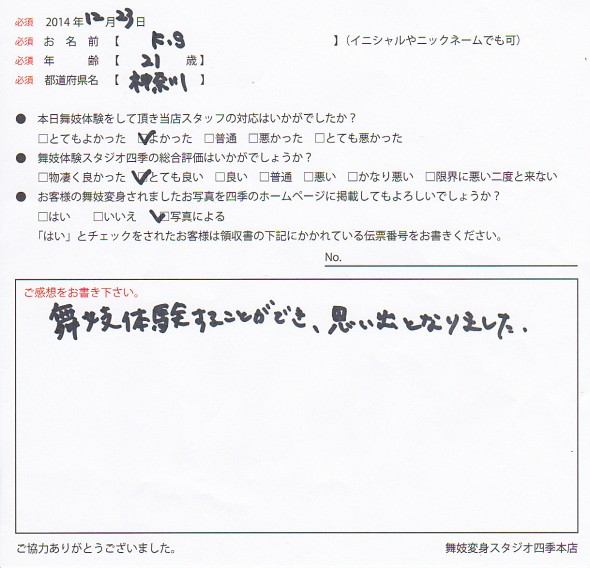 必須 2014年12月23日
必須 お名前【 K.S 】(イニシャルやニックネームでも可)
必須 年齢【 21 歳】
必須 都道府県名【 神奈川 】
● 本日舞妓体験をして頂き当店スタッフの対応はいかがでしたか?
□とてもよかった ☑よかった □普通 □悪かった □とても悪かった
● 舞妓体験スタジオ四季の総合評価はいかがでしょうか?
□物凄く良かった ☑とても良い □良い □普通 □悪い □かなり悪い □限界に悪い二度と来ない
● お客様の舞妓変身されましたお写真を四季のホームページに掲載してもよろしいでしょうか?
□はい □いいえ ☑写真による
「はい」とチェックをされたお客様は領収書の下記にかかれている伝票番号をお書きください。
No.
ご感想をお書き下さい。
舞妓体験することができ、思い出となりました.
ご協力ありがとうございました。 舞妓変身スタジオ四季本店